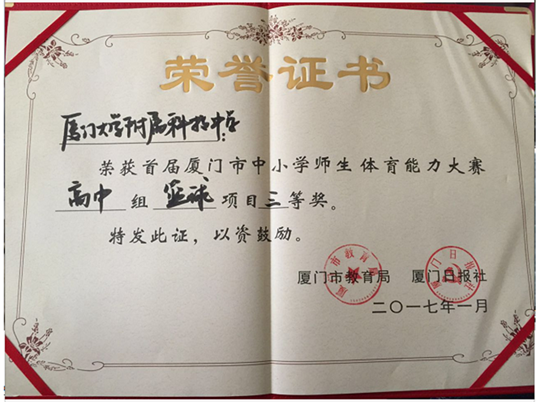 荣誉证书
厦门大学附属科技中学
荣获首届厦门市中小学师生体育能力大赛
高中组篮球项目三等奖。
特发此证，以资鼓励。
厦门市教育局 厦门日报社
二〇一七年一月